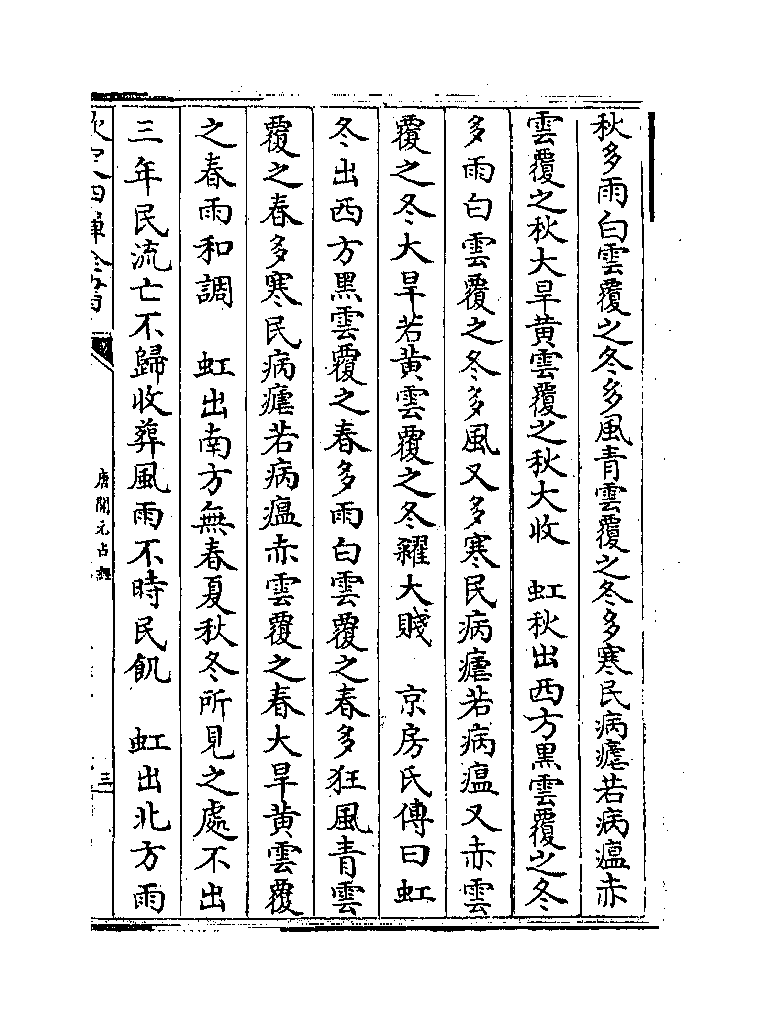 秋多雨白雲覆之冬多風青雲覆之冬多寒民病瘧若病瘟赤
雲覆之秋大旱黄雲覆之秋大收　虹秋出西方黒雲覆之冬
多雨白雲覆之冬多風又多寒民病瘧若病瘟又赤雲
覆之冬大旱若黄雲覆之冬糴大賤　京房氏傳曰虹
冬出西方黒雲覆之春多雨白雲覆之春多狂風青雲
覆之春多寒民病瘧若病瘟赤雲覆之春大旱黄雲覆
之春雨和調　虹出南方無春夏秋冬所見之處不出
三年民流亡不歸收葬風雨不時民飢　虹出北方雨
欽定四庫全書
唐開元占經
三